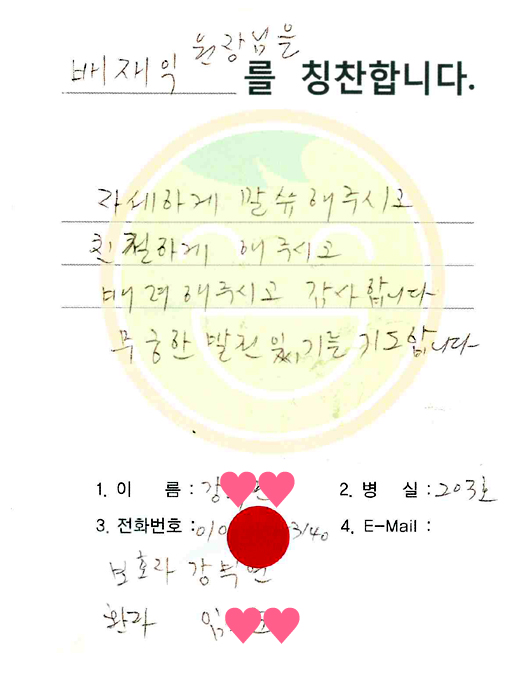 배재익 원장님을 를 칭찬합니다.
자세하게 말슴 해주시고
친절하게 해주시고
배려해주시고 감사합니다
무궁한 발전 있기를 기도합니다
1. 이 름 : 강
2. 병 실 : 203호
3. 전화번호 : 010 3140
4. E-Mail :
보호자 강
환자 임